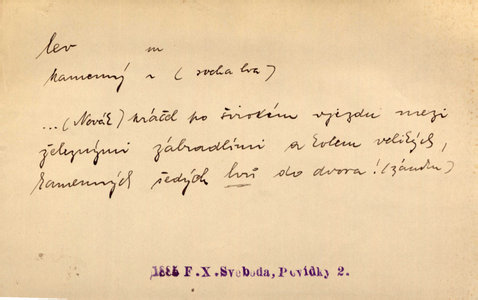 lev m
kamenný n (socha lva)
...(Novák) kráčel po širokém vjezdu mezi
železnými zábradlími a kolem velikých,
kamenných šedých lvů do dvora! (zámku)
1885 F.X.Svoboda, Povídky 2.